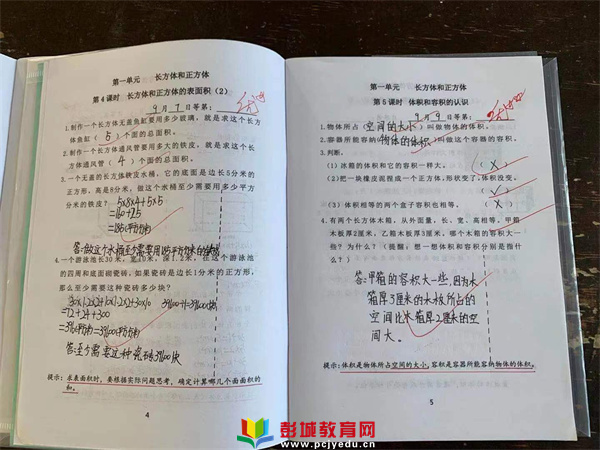 第一单元 长方体和正方体
第4课时 长方体和正方体的表面积（2）
9月7日等第：
1.制作一个长方体无盖鱼缸要用多少玻璃，就是求这个长方
体鱼缸（5）个面的总面积。
2.制作一个长方体通风管要用多大的铁皮，就是求这个长方
体通风管（4）个面的总面积。
3.一个无盖的长方体铁皮水桶，它的底面是边长5分米的
正方形，高是8分米，做这个水桶至少需要用多少平方
分米的铁皮？
5×8×4+5×5
=160+25
=185(平方分米)
答:做这个水桶至少需要用185平方分米的铁皮
4.一个游泳池长30米，宽10米，深1.2米，在这个游泳池
的四周和底面砌瓷砖，如果瓷砖是边长1分米的正方形，
那么至少需要这种瓷砖多少块？
=12+24+300
答:至少需要这种瓷砖39600块
提示：求表面积时，要根据实际问题思考，确定计算哪几个面面积的
和。
4
第一单元 长方体和正方体
第5课时 体积和容积的认识
9月9日等第：
1.物体所占（空间的大小）叫做物体的体积。
2.容器所能容纳（物体的体积）叫做这个容器的容积。
3.判断。
（1）冰箱的体积和它的容积一样大。（×）
（2）把一块橡皮泥捏成一个正方体，形状变了，体积没变。
（√）
（3）体积相等的两个盒子容积也相等。（×）
4.有两个长方体木箱，从外面量，长、宽、高相等。甲箱
木板厚2厘米，乙箱木板厚3厘米，哪个木箱的容积大一
些？为什么？（提醒：想一想体积和容积分别是指什
么？）
答:甲箱的容积大一些,因为木
箱厚3厘米的木板所占的
空间比木箱厚2厘米的空
间大。
提示：体积是物体所占空间的大小，容积是容器所能容纳物体的体积。
5
彭城教育网
www.pcjyedu.cn